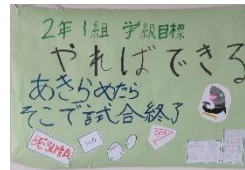 2年1組 学級目標
やればできる
あきらめたら
そこで試合終了